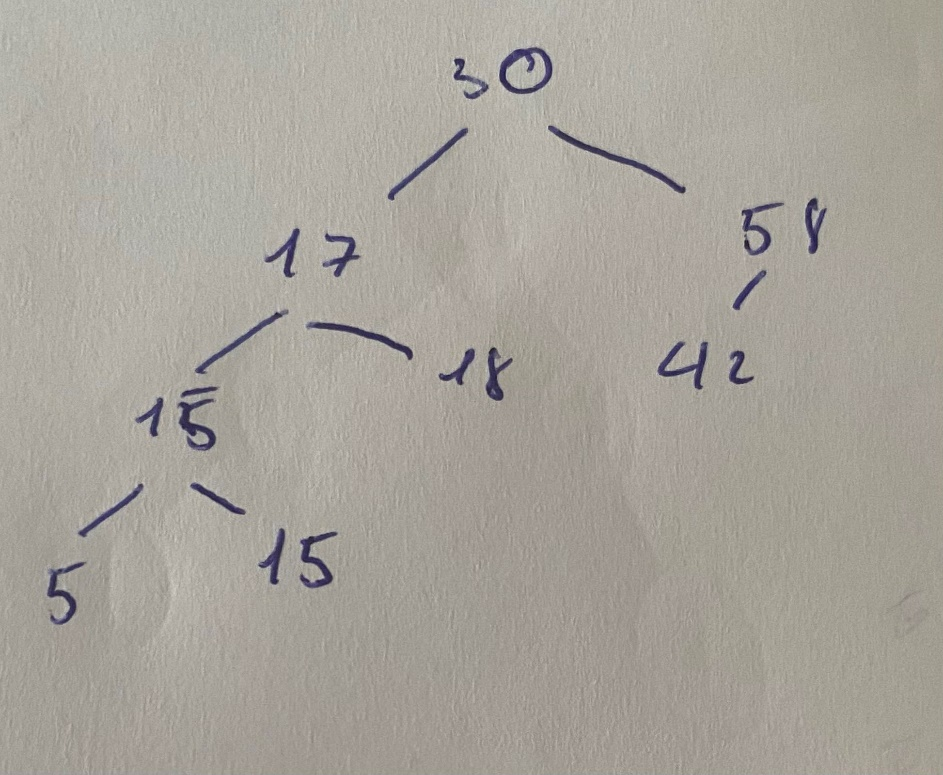 30
17 58
15 18 42
5 15